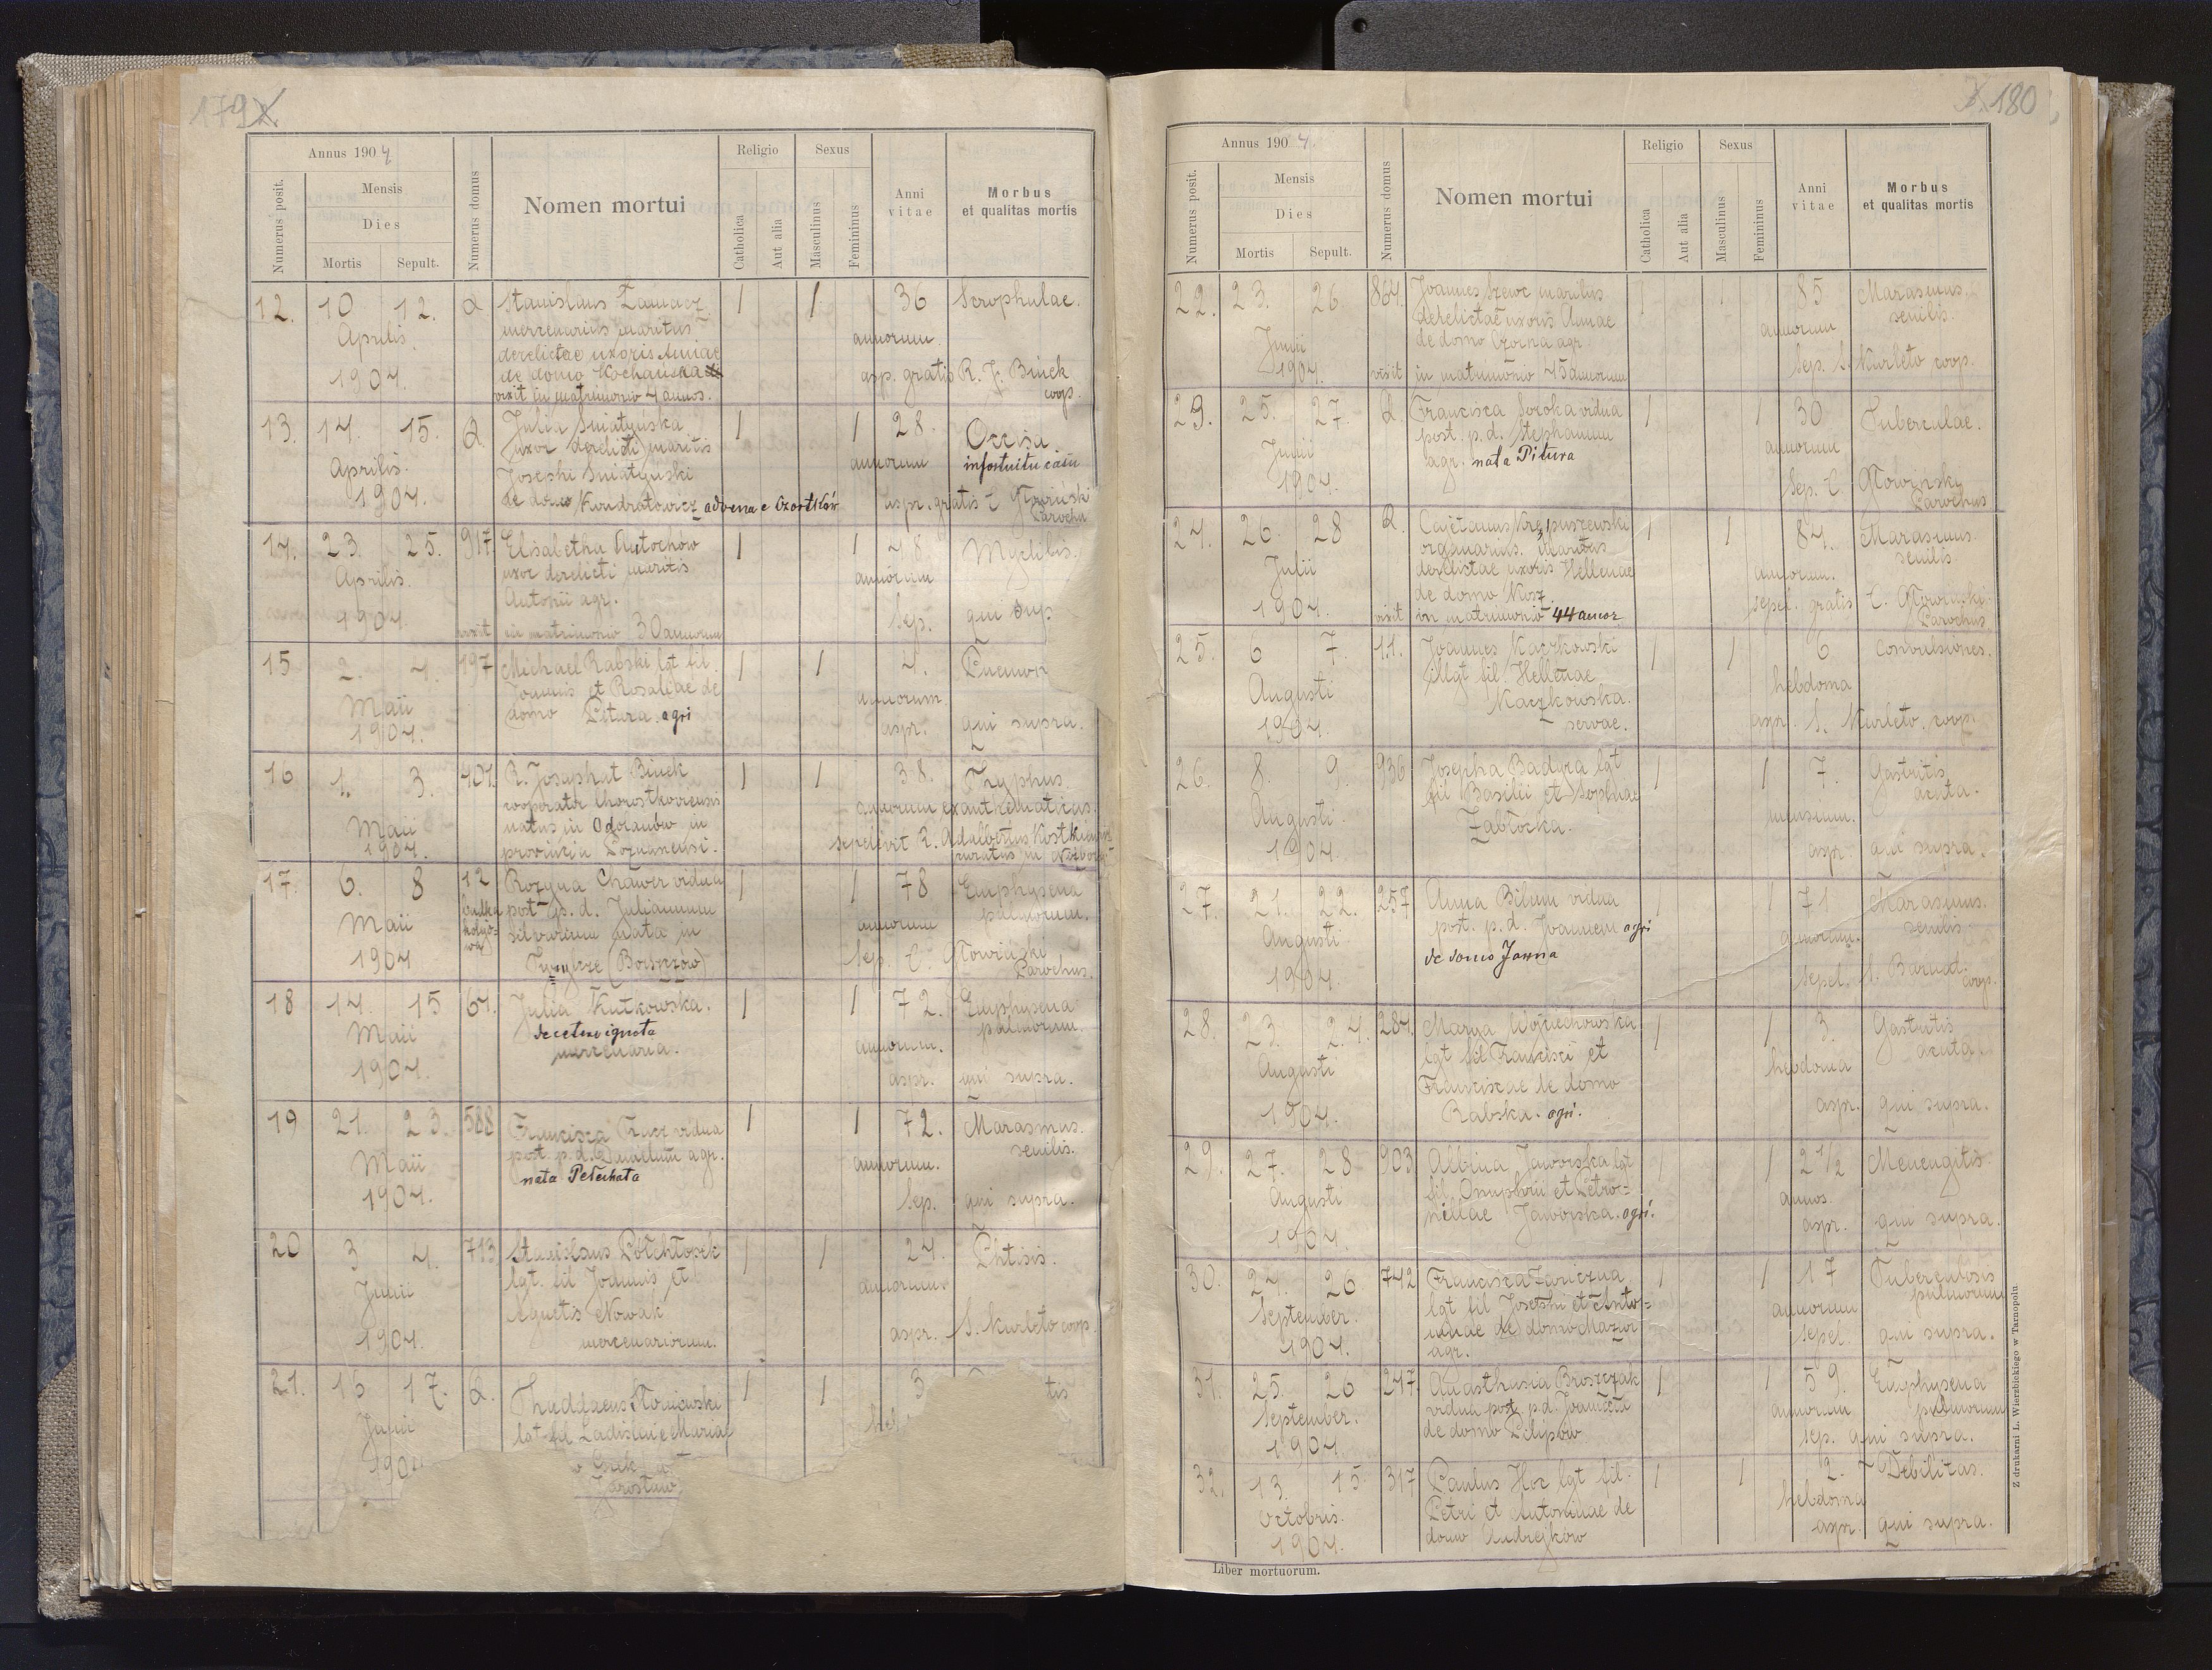 179
Annus 1904
Numerus posit.
Mensis
Dies
Mortis
Sepult.
Numerus domus
Nomen mortui
Religio
Catholica
Aut alia
Sexus
Masculinus
Femininus
Anni vitae
Morbus
et qualitas mortis
12. 10 12. 2 Stanislaus 1 1 36 Scrophulae.
Aprilis mercenarius maritus annorum
derelictae uxoris Anniae
1904. de domo Kochanska asp. gratis R. J. Binek
vixit in matrimonio 4 annos. coop.
13. 14. 15. 2. Julia Sniatynska 1 1 28. Occisa
Aprilis. uxor derelicti maritis annorum infortuitu casu
1904. Josephi Sniatynski
de domo Kondratowicz advena e aspr. gratis C Głowiński
Parochu
14. 23. 25. 917. Elisabetha 1 1 48 Myelitis.
Aprilis. uxor derelicti maritis annorum
Antonii agr.
1904. vixit in matrimonio 30 annorum Sep. qui sup
15 2. 4. 197 Michael Rabski lgt fil. 1 1 4. Pneumon
Maii Joannis et Rosaliae de annorum
1904. domo Pitura agri aspr. qui supra.
16 1. 3. 401. R. Josaphat Binek 1 1 38. Thyphus
cooperator Chorostkoviensis annorum exanthematicus.
Maii natus in Odoranów in sepelevit R. Adalbertus
1904. provinkia Poznanensi. curatus in
17. 6. 8 12 Rozyna Chawer vidua 1 1 78 Emphysena
budka kolejowa post p. d. Julianum annorum pulmorum.
Maii silvarium nata in
1904 (Borszczow) Sep. C. Głowiński
Parochus.
18 14. 15 61. Julia Kutkowska. 1 1 72. Emphysena
Maii de cetero ignota annorum. pulmorum.
1904. mercenaria. aspr. qui supra.
19 21. 23. 588 Francisca vidua 1 1 72. Marasmus
Maii post. p. d. Danielum agr. annorum. senilis.
1904. nata Pełechata Sep. qui supra.
20 3 4. 713 Stanislaus 1 1 24. Phtisis.
Junii lgt. fil Joannis et annorum
Agnetis Nowak
1904. mercenariorum. aspr. S. Kurleto coop.
21. 16 17. 2. Thaddaeus 1 1 3 tis
Junii lgt fil Ladislai e Mariae heb
1904
Jarosław.
180
Annus 1904.
Numerus posit.
Mensis
Dies
Mortis
Sepult.
Numerus domus
Nomen mortui
Religio
Catholica
Aut alia
Sexus
Masculinus
Femininus
Anni vitae
Morbus
et qualitas mortis
22. 23. 26. 864. Joannes Szewc maritus 1 1 85 Marasmus
derelictae uxoris Annae annorum senilis.
de domo Czorna agr.
1904. vixit in matrimonio 45 annorum Sep. S. Kurleto coop.
23. 25. 27. 2. Francisca Soroka vidua 1 1 30 Tuberculae.
Julii post. p. d. Stephanum annorum
1904. agr. nata Pitura Sep. C. Głowinsky
Parochus
24. 26. 28 2. Cajetanus 1 1 84. Marasmus
Julii organarius. Maritus annorum. senilis.
derelictae uxoris Hellenae
de domo Kosz sepel. gratis C. Głowinski
1904. vixit in matrimonio 44 annor. Parochus
25. 6 7. 11. Joannes Kaczkowski 1 1 6 Convulsiones.
Augusti illgt fil. Hellenae hebdoma
Kaczkowska
1904. servae. aspr. S. Kurleto. coop.
26 8. 9. 936 Josepha Badyra lgt 1 1 7. Gastritis
Augusti fil Basilii et Sophiae mensium. acuta.
Zabłocka.
1904. aspr. qui supra.
27. 21. 22. 257 Anna Bilum vidua 1 1 71 Marasmus.
Augusti post. p. d. Joannem agri annorum. senilis.
de domo Jarma
1904. sepel. coop.
28. 23. 24. 284. Marya Wojciechowska 1 1 3. Gastritis
Augusti lgt fil Francisci et hebdoma acuta.
Franciscae de domo
1904. Rabska. agri. aspr. qui supra.
29. 27. 28 903 Albina Jaworska lgt 1 1 2 1/2 Menengitis.
Augusti fil Onuphrii et Petro- annos.
1904. nillae Jaworska. agri. aspr. qui supra.
30. 24. 26 742 Francisca lgt 1 1 17 Tuberculosis
September. lgt fil Josephi et Anto- annorum pulmorum
1904. ninae de domo Mazur sepel. qui supra.
agr.
31. 25. 26 247. Anasthasia Broszczak 1 1 59. Emphysena
September. vidua post. p. d. Joannem annorum pulmorum
1904. de domo Pilipów sep. qui supra.
32. 13. 15 317 Paulus Hoc lgt fil. 1 1 2. Debilitas.
Octobris. Petri et Antoninae de hebdoma
1904. domo Andrejków aspr. qui supra.
Liber mortuorum.
Z drukarni L. Wierzbickiego w Tarnopolu.